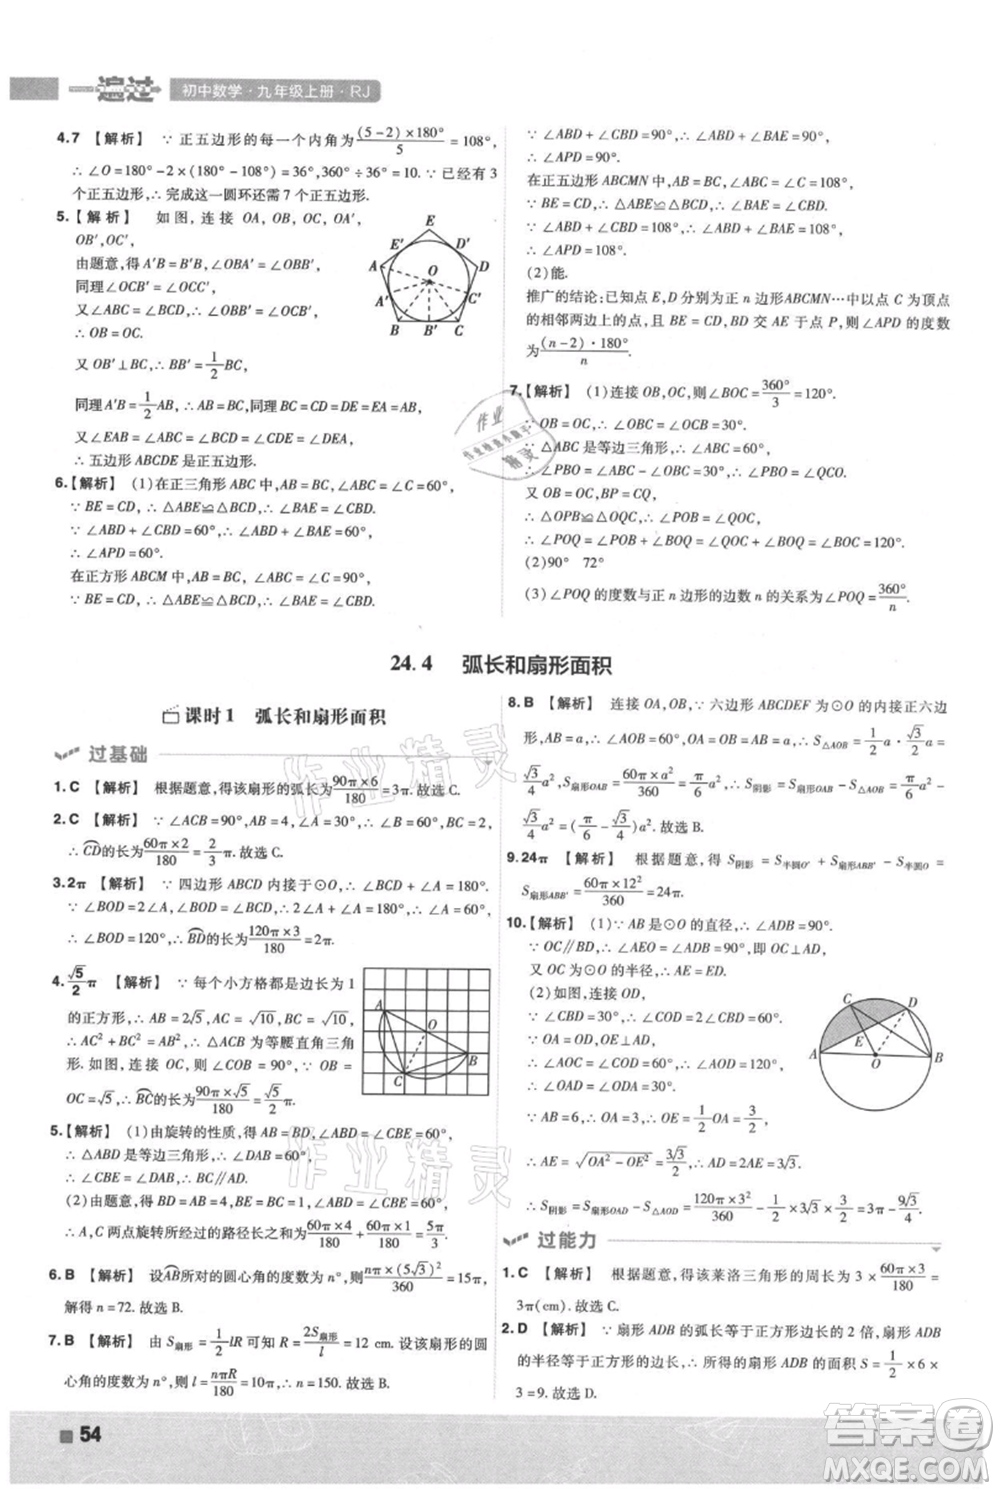 一遍过 初中数学·九年级上册·RJ
4.7 【解析】 ∵ 正五边形的每一个内角为(5-2)×180°/5=108°,
∴ ∠O=180°-2×(180°-108°)=36°,360°÷36°=10. ∵ 已经有3
个正五边形,∴ 完成这一圆环还需7个正五边形.
5.【解析】 如图,连接 OA,OB,OC,OA′,
OB′,OC′,
由题意,得 A′B=B′B,∠OBA′=∠OBB′,
同理∠OCB′=∠OCC′.
又∵ ∠ABC=∠BCD,∴ ∠OBC=∠OCB,
∴ OB=OC.
又 OB′⊥BC,∴ BB′=1/2BC,
同理 A′B=1/2AB,∴ AB=BC,同理 BC=CD=DE=AE.
又∠EAB=∠ABC=∠BCD=∠CDE=∠DEA,
∴ 五边形 ABCDE 是正五边形.
6.【解析】 (1)在正三角形 ABC 中,AB=BC,∠ABC=∠C=60°,
∵ BE=CD,∴ △ABE≌△BCD,∴ ∠BAE=∠CBD.
∵ ∠ABD+∠CBD=60°,∴ ∠ABD+∠BAE=60°,
∴ ∠APD=60°.
在正方形 ABCM 中,∵ AB=BC,∠ABC=∠C=90°,
∵ BE=CD,∴ △ABE≌△BCD,∴ ∠BAE=∠CBD.
∵ ∠ABD+∠CBD=90°,∴ ∠ABD+∠BAE=90°,
∴ ∠APD=90°.
在正五边形 ABCMN 中,AB=BC,∠ABC=∠C=108°,
∵ BE=CD,∴ △ABE≌△BCD,∴ ∠BAE=∠CBD.
∵ ∠ABD+∠CBD=108°,∴ ∠ABD+∠BAE=108°,
∴ ∠APD=108°.
(2)能.
推广的结论:已知点 E,D 分别为正 n 边形ABCMN⋯中以点 C 为顶点
的相邻两边上的点,且 BE=CD,BD 交 AE 于点 P,则∠APD 的度数
为(n-2)·180°/n.
7.【解析】 (1)连接 OB,OC,则∠BOC=360°/3=120°.
∵ OB=OC,∴ ∠OBC=∠OCB=30°.
∵ △ABC 是等边三角形,∴ ∠ABC=60°,
∴ ∠PBO=∠ABC-∠OBC=30°,∴ ∠PBO=∠OCQ.
又∵ OB=OC,BP=CQ,
∴ △OPB≌△OQC,∴ ∠POB=∠QOC,
∴ ∠POQ=∠POB+∠BOQ=∠QOC+∠BOQ=∠BOC=120°.
(2)90° 72°
(3)∠POQ 的度数与正 n 边形的边数 n 的关系为∠POQ=360°/n.
24.4 弧长和扇形面积
课时1 弧长和扇形面积
过基础
1.C 【解析】 根据题意,得该扇形的弧长为90π×6/180=3π.故选 C.
2.C 【解析】 ∵ ∠ACB=90°,∠A=30°,∴ ∠B=60°.∵ AC=2√3,∴ BC=2,
∴ CD的长为60π×2/180=2/3π.故选 C.
3.2π 【解析】 ∵ 四边形 ABCD 内接于⊙O,∴ ∠BCD+∠A=180°.
∵ ∠BOD=2∠A,∠BOD=∠BCD,∴ 2∠A+∠A=180°,∴ ∠A=60°,
∴ ∠BOD=120°,∴ BD的长为120π×3/180=2π.
4.√5/2π 【解析】 ∵ 每个小方格都是边长为1
的正方形,∴ AB=2√5,AC=√10,BC=√10,
∴ AC²+BC²=AB²,∴ △ACB 为等腰直角三角
形. 如图,连接 OC,则∠COB=90°.∵ OB=
OC=√5,∴ BC的长为90π×√5/180=√5/2π.
5.【解析】 (1)由旋转的性质,得 AB=BD,∠ABD=∠CBE=60°,
∴ △ABD 是等边三角形,∴ ∠DAB=60°,
∴ ∠CBE=∠DAB,∴ BC∥AD.
(2)由题意,得 AB=4,BC=1,∠ABD=∠CBE=60°,
∴ A,C 两点旋转所经过的路径长之和为60π×4/180+60π×1/180=5π/3.
6.B 【解析】 设AB所对的圆心角的度数为 n°,则nπ×(5√3)²/360=15π,
解得 n=72.故选 B.
7.B 【解析】 由 S扇形=1/2lR 可知 R=2S扇形/l=12 cm. 设该扇形的圆
心角的度数为 n°,则 l=nπR/180,∴ n=150.故选 B.
8.B 【解析】 连接 OA,OB,∵ 六边形 ABCDEF 为⊙O 的内接正六边
形,AB=a,∴ △AOB 为等边三角形,∴ OA=OB=a,∴ S△AOB=1/2a·√3/2a=
√3/4a²,S扇形OAB=60π×a²/360=π/6a²,∴ S阴影=S扇形OAB-S△AOB=π/6a²-
√3/4a²=(π/6-√3/4)a².故选 B.
9.24π 【解析】 根据题意,得 S阴影=S半圆O′+S扇形ABB′-S半圆O=
S扇形ABB′=60π×12²/360=24π.
10.【解析】 (1)∵ AB 是⊙O 的直径,∴ ∠ADB=90°.
∵ OC∥BD,∴ ∠AEO=∠ADB=90°,即 OC⊥AD,
又∵ OC 为⊙O 的半径,∴ AE=ED.
(2)如图,连接 OD,
∵ OC⊥AD,∴ AC=CD,
∴ ∠COD=2∠CBD=60°.
∵ OA=OD,
∴ ∠AOC=∠COD=60°,
∴ ∠OAD=∠ADO=30°.
∵ AB=6,∴ OA=3,∴ OE=1/2OA=3/2,
∴ AE=√OA²-OE²=3√3/2,∴ AD=2AE=3√3,
∴ S阴影=S扇形OAD-S△AOD=120π×3²/360-1/2×3√3×3/2=3π-9√3/4.
过能力
1.C 【解析】 根据题意,得该莱洛三角形的周长为 3×60π×3/180=
3π(cm).故选 C.
2.D 【解析】 ∵ 扇形 ADB 的弧长等于正方形边长的 2 倍,扇形 ADB
的半径等于正方形的边长,∴ 所得的扇形 ADB 的面积 S=1/2×6×
3=9.故选 D.
54
作业精灵
答案圈
MXQE.COM